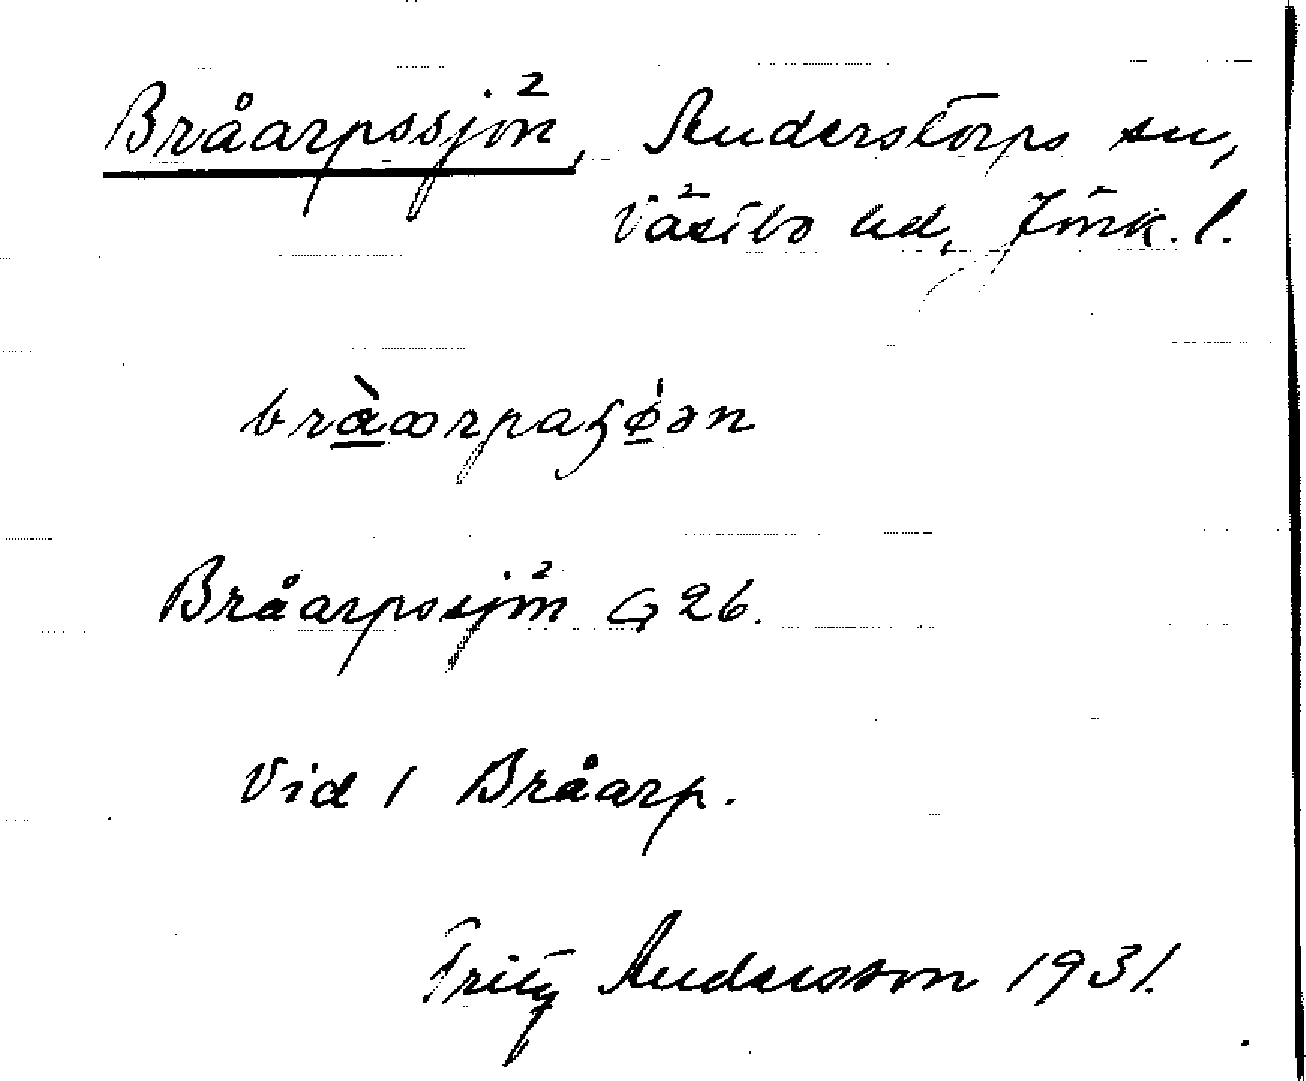 Bråarpssjön, Anderstorps sn,
Västbo hd, Jönk. l.
bråarpaʂø̀ən
Bråarpssjön G 26.
Vid / Bråarp.
Fritz Andersson 1931.